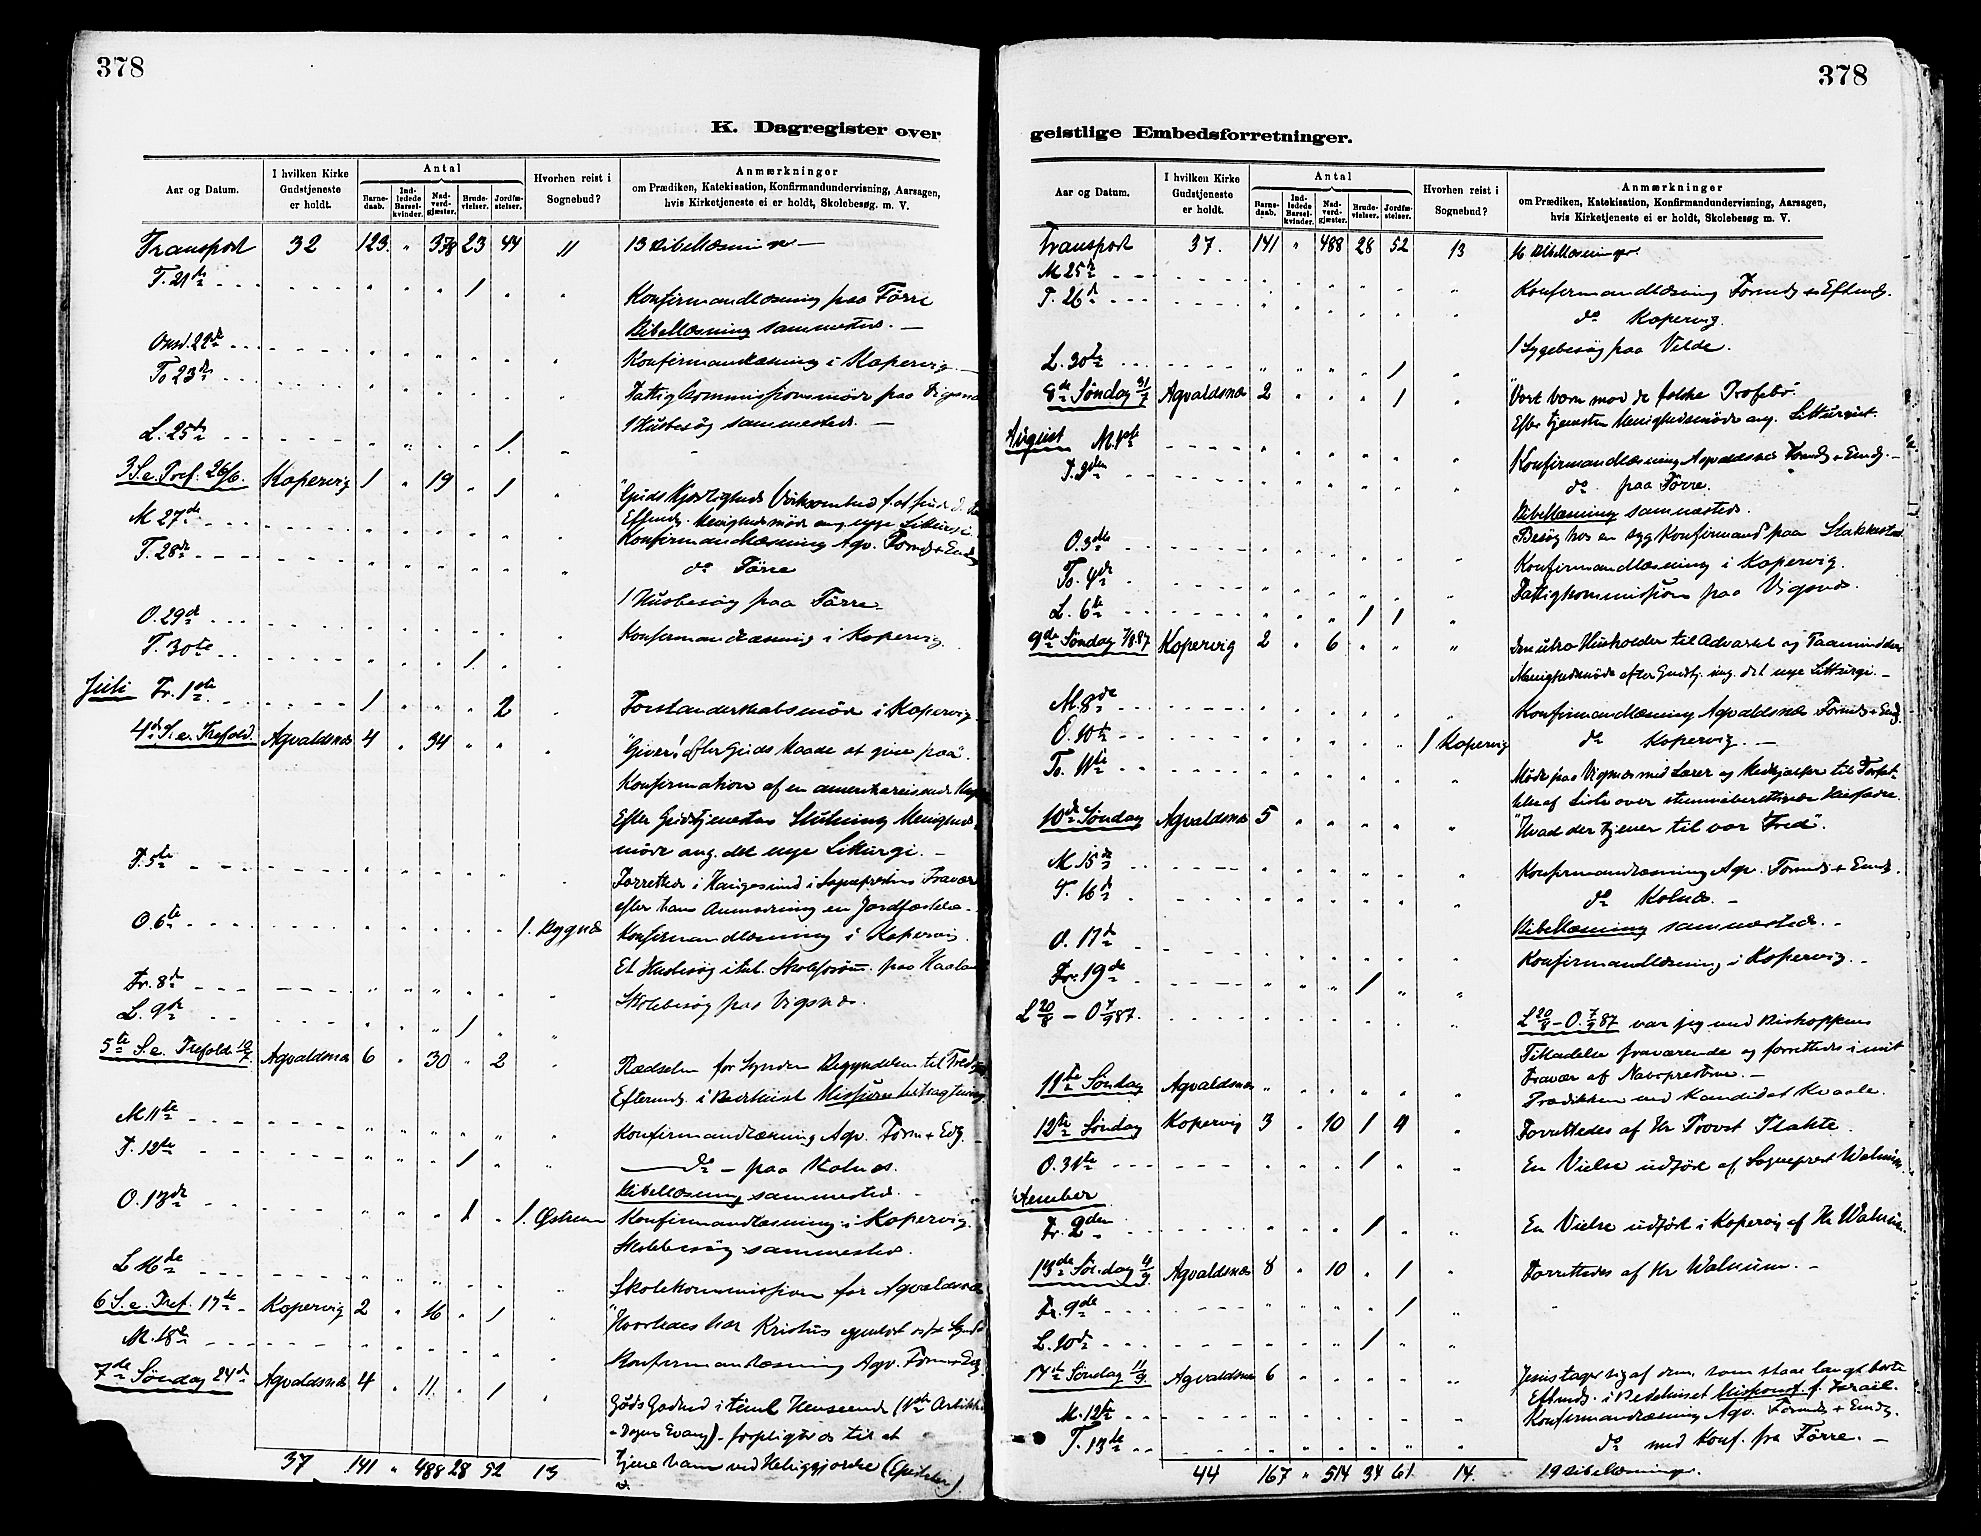 378
K. Dagregister over
Aar og Datum.
I hvilken Kirke Gudstjeneste er holdt.
Antal
Barnedaab.
Indledede Barselkvinder.
Nadverdgjæster.
Brudevielser.
Jordfæstelser.
Hvorhen reist i Sognebud?
Anmærkninger
om Prædiken, Katekisation, Konfirmandundervisning, Aarsagen,
hvis Kirketjeneste ei er holdt, Skolebesøg. m. V.
Transport 32 123 " 378 23 44 11 13 Bibellæsninger
T. 21de 1
Konfirmandlæsning paa Førre
Bibellæsning sammesteds. —
Onsd. 22de Konfirmandlæsning i Kopervig
To 23de Fattigkommissionsmøde paa
1 Husbesøg sammesteds. —
L. 25de 1
3 S. e. Tref. 26/6. Kopervig 1 " 19 " 1 "Guds Kjærligheds Virksomhed
M 27de Konfirmandlæsning Agv. Formd + Emd
T. 28de do Førre
1 Husbesøg paa Førre
O. 29de Konfirmandlæsning i Kopervig
T. 30te 1
Juli Fr. 1ste 1 2 Forstanderskabsmøde i Kopervig
4de S. e. Trefold. Agvaldsnæs 4 " 34 "Giver! efter Guds Maade at give paa".
Konfirmation af en
Efter Gudstjenesten Slutning Menigheds
møde ang. det nye Liturgi. —
T. 5te Forrettede i Haugesund i Sogneprestens Fravær
efter hans Anmodning en Jordfæstelse
O. 6te 1. Bygnæs Konfirmandlæsning i Kopervig.
Et Husbesøg
Fr. 8de Skolebesøg paa Vigsnæs.
L. 9de 1
5te S. e. Trefold 10/7. Agvaldsnæs 6 " 30 " 2 Rædselen for Synden Begyndelsen til
Eftermd. i Bedehuset Missions betragtning
M 11te Konfirmandlæsning Agv. Form + Emd.
T. 12te 1 — do — paa Kolnæs.
Bibellæsning sammesteds.
O. 13de 1 1. Østrem Konfirmandlæsning i Kopervig.
Skolebesøg sammesteds.
L 16de Skolekommission for Agvaldsnæs
6 S. e. Tref. 17de Kopervig 2 " 16 " 1 "Hvorledes har Kristus
M. 18de Konfirmandlæsning Agv. Form + Emd
7de Søndag 24de Agvaldsnæs 4 " 11 " 1 Guds Godhed i timl. Henseende (1ste Artikkel
+ Dagens Evang) – forpligter os til at
tjene ham ved Helliggjørelse (Epistelen)
37 141 " 488 28 52 13
378
geistlige Embedsforretninger.
Aar og Datum.
I hvilken Kirke Gudstjeneste er holdt.
Antal
Barnedaab.
Indledede Barselkvinder.
Nadverdgjæster.
Brudevielser.
Jordfæstelser.
Hvorhen reist i Sognebud?
Anmærkninger
om Prædiken, Katekisation, Konfirmandundervisning, Aarsagen,
hvis Kirketjeneste ei er holdt, Skolebesøg m. V.
Transport 37. 141 " 488 28 52 13 16 Bibellæsninger.
M 25de Konfirmandlæsning Formd + Eftmd.
T. 26de do Kopervig.
1 Sygebesøg paa Velde.
L. 30te 1
8de Søndag 31/7 Agvaldsnæs 2 1 "Vort Værn mod de falske Profeter.
Efter tjenesten Menighedsmøde ang. Litturgiet.
August M. 1ste Konfirmandlæsning Agvaldsnæs Formd + Emd. —
T. 2den do paa Førre.
Bibellæsning sammesteds.
Besøg hos en syg Konfirmand paa
O. 3die Konfirmandlæsning i Kopervig.
To. 4de Fattigkommission paa Vigsnæs.
L. 6te 1 1
9de Søndag 7/8 87 Kopervig 2 " 6 Den utro Husholder til Advarsel og
Menighedsmøde efter Gudstj. ang. det nye Litturgi. —
M. 8de Konfirmandlæsning Agvaldsnæs Formd + Emd.
O. 10de 1 Kopervig do Kopervig. —
To. 11te Møde paa Vigsnæs med Lærer og Medhjælper til
af Liste over stemmeberettigede
10de Søndag Agvaldsnæs 5 "Hvad der tjener til vor Fred".
M. 15de Konfirmandlæsning Agv. Formd + Emd.
T. 16de do Kolnæs. —
Bibellæsning sammesteds. —
O. 17de Konfirmandlæsning i Kopervig. —
Fr. 19de 1
L 20/8 – O 7/9 87. L 20/8 – O. 7/9 87 var jeg med Biskoppens
Tilladelse fraværende og forrettedes i mit
Fravær af Naboprestene. —
11te Søndag Agvaldsnæs Prædiken ved Kandidat Kvaale.
12te Søndag Kopervig 3 " 10 1 4 Forrettedes af Hr Provst
O. 31te 1 En Vielse udført af Sogneprest Walnum.
tember
Fr. 2den 1 En Vielse udført i Kopervig af Hr Walnum.
13de Søndag 4/9 Agvaldsnæs 8 " 10 " 1 Forrettedes af Hr Walnum. —
Fr. 9de 1
L. 10de 1
14de Søndag 11/9 Agvaldsnæs 6 Jesus tager sig af dem, som staar langt borte
Eftmd. i Bedehuset Missionst. f. Israel.
M. 12te Konfirmandlæsning Agv. Formd + Emd.
T. 13de do med Konf. fra Førre. —
44 167 " 514 34 61 14. 19 Bibellæsninger.